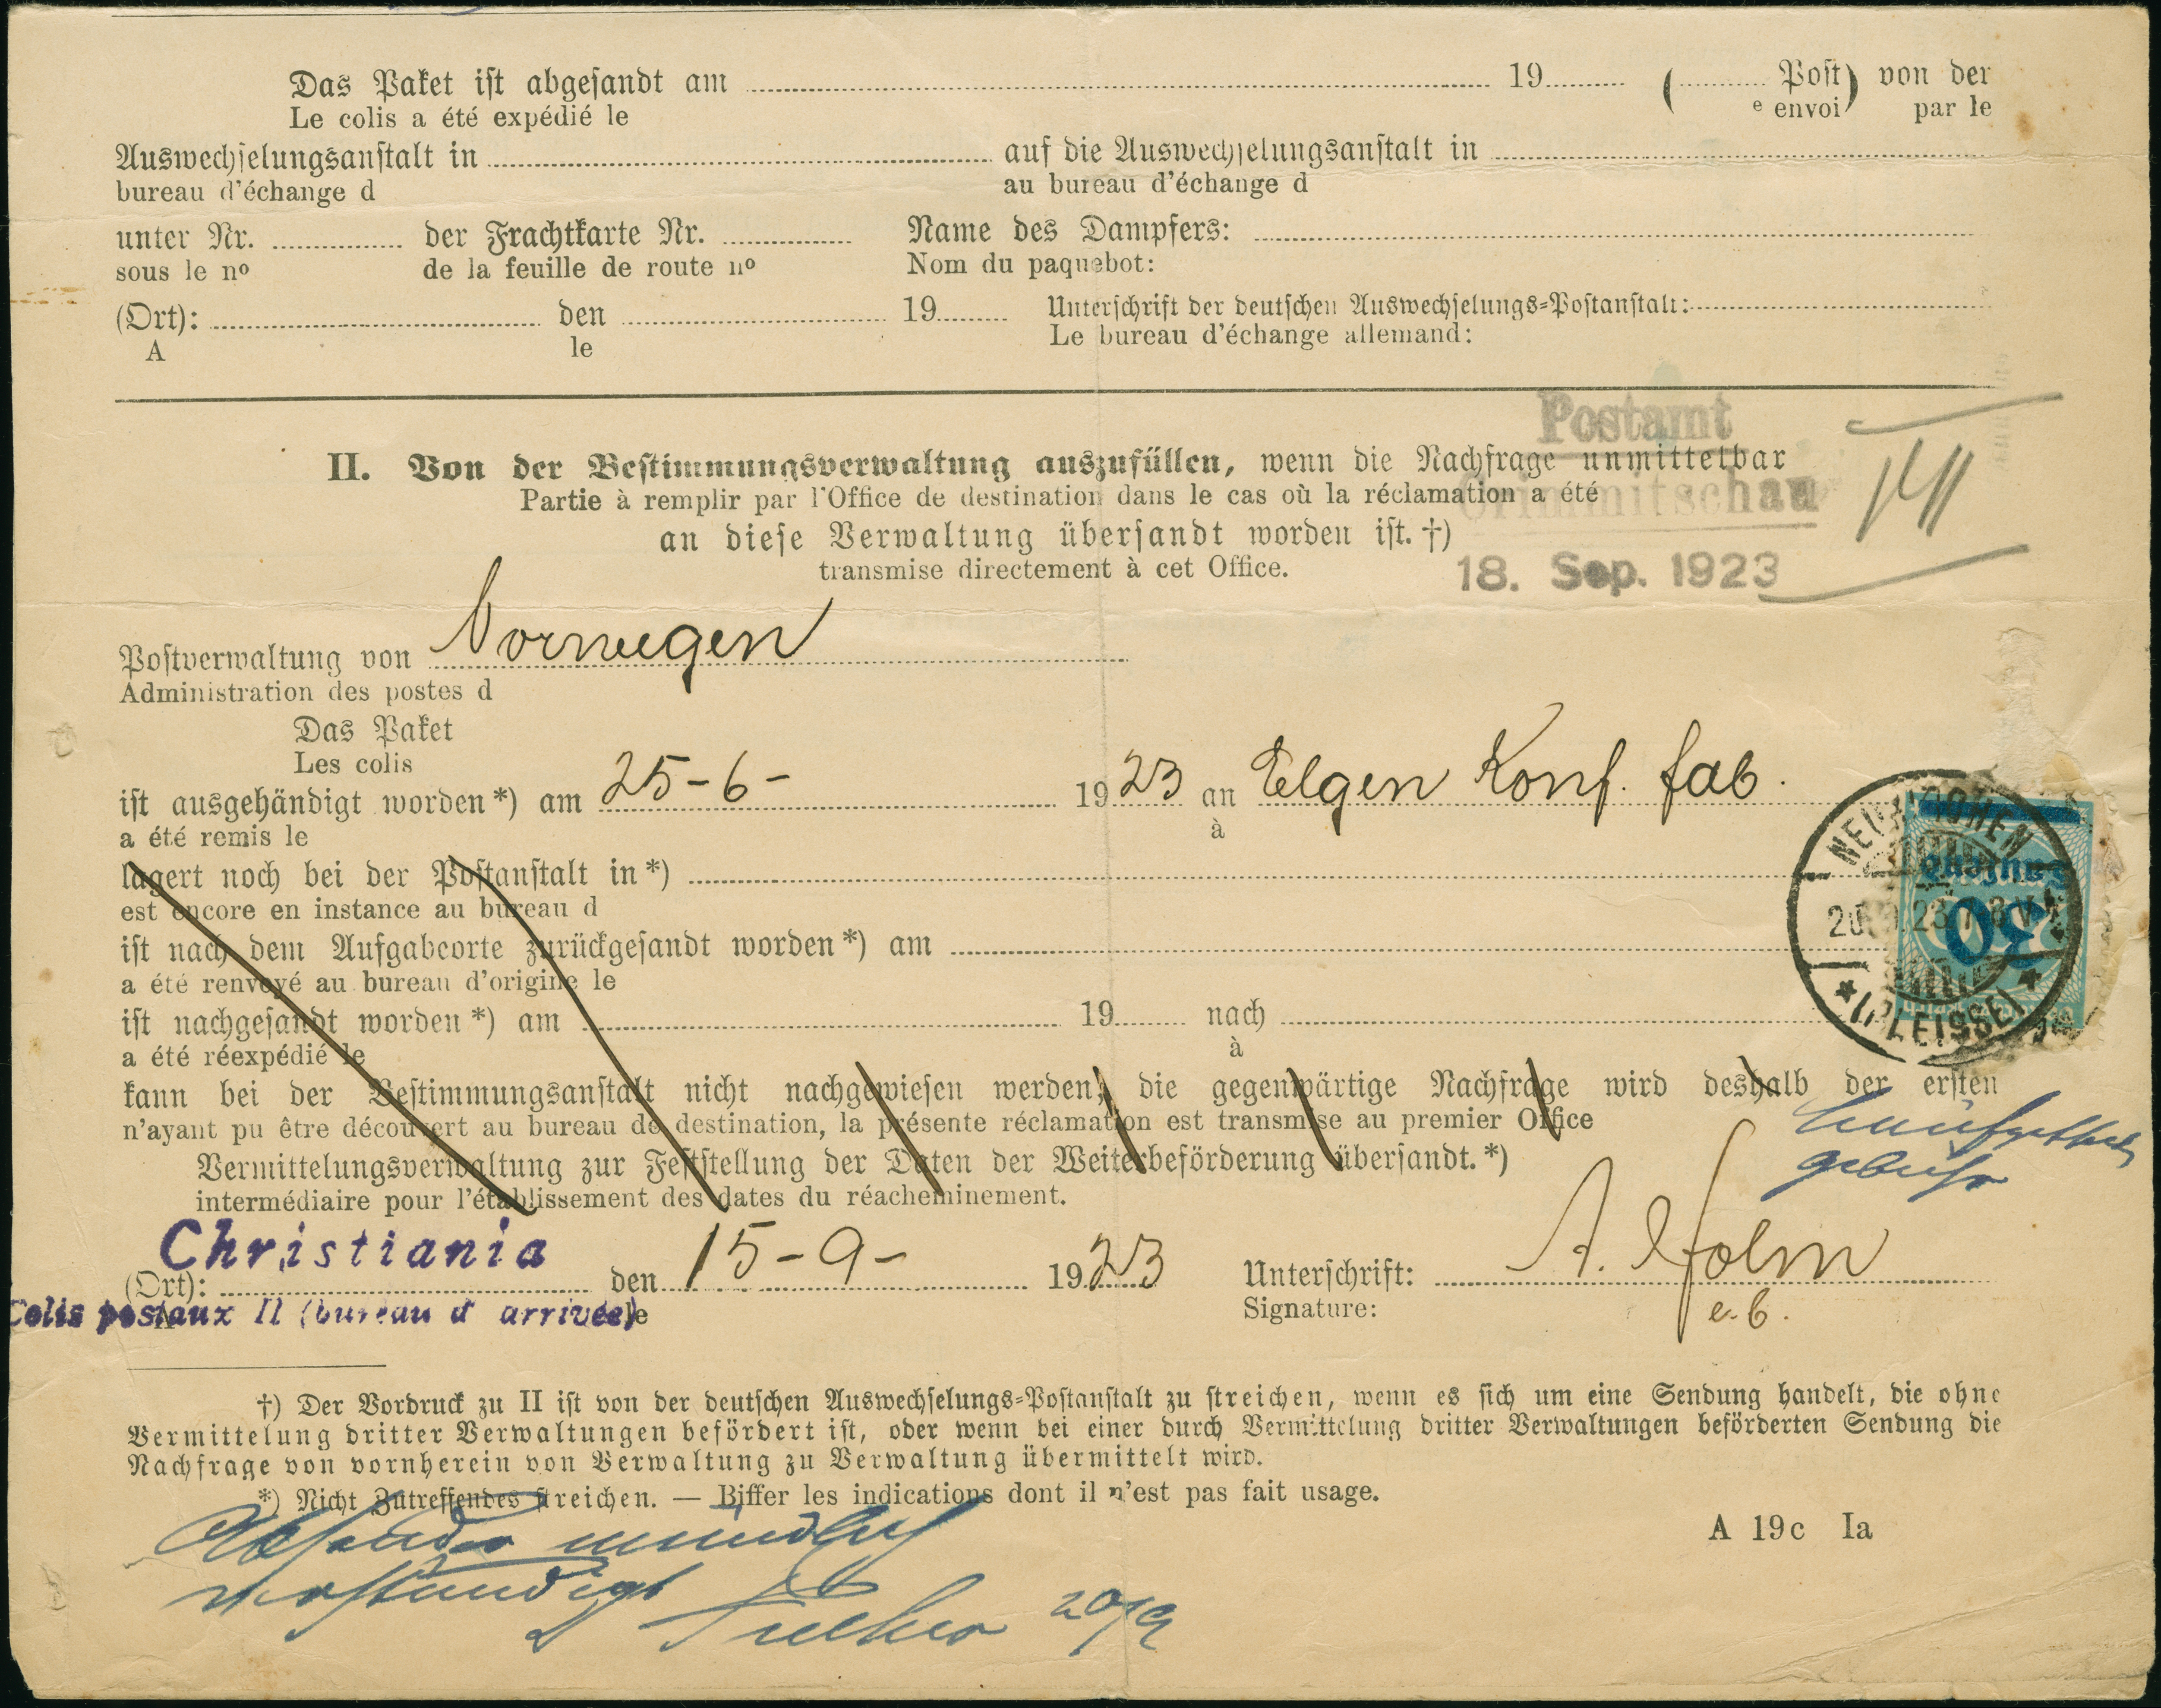 Das Paket ist abgesandt am 19 ( Post) von der
Le colis a été expédié le e envoi par le
Auswechselungsanstalt in auf die Auswechselungsanstalt in
bureau d'échange d au bureau d'échange d
unter Nr. der Frachtkarte Nr. Name des Dampfers:
sous le nº de la feuille de route nº Nom du paquebot:
(Ort): den 19 Unterschrift der deutschen Auswechselungs=Postanstalt:
A le Le bureau d'échange allemand:
Postamt
II. Von der Bestimmungsverwaltung auszufüllen, wenn die Nachfrage unmittelbar
Partie à remplir par l'Office de destination dans le cas où la réclamation a été
Crimmitschau
an diese Verwaltung übersandt worden ist. †)
transmise directement à cet Office.
18. Sep. 1923
Postverwaltung von Norwegen
Administration des postes d
Das Paket
Les colis
ist ausgehändigt worden*) am 25-6- 1923 an Elgen Konf. fab.
a été remis le à
lagert noch bei der Postanstalt in*)
est encore en instance au bureau d
ist nach dem Aufgabeorte zurückgesandt worden*) am
a été renvoyé au bureau d'origine le
ist nachgesandt worden*) am 19 nach
a été réexpédié le à
NEUKIRCHEN
23 7-8 V
*(PLEISSE)*
Tausend
30
kann bei der Bestimmungsanstalt nicht nachgewiesen werden; die gegenwärtige Nachfrage wird deshalb der ersten
n'ayant pu être découvert au bureau de destination, la présente réclamation est transmise au premier Office
Vermittelungsverwaltung zur Feststellung der Daten der Weiterbeförderung übersandt.*)
intermédiaire pour l'établissement des dates du réacheminement.
gebühr
Christiania
(Ort): den 15-9- 1923 Unterschrift: A. Holm
Colis postaux II (bureau d'arrivée) le Signature: e.b.
†) Der Vordruck zu II ist von der deutschen Auswechselungs=Postanstalt zu streichen, wenn es sich um eine Sendung handelt, die ohne
Vermittelung dritter Verwaltungen befördert ist, oder wenn bei einer durch Vermittelung dritter Verwaltungen beförderten Sendung die
Nachfrage von vornherein von Verwaltung zu Verwaltung übermittelt wird.
*) Nicht Zutreffendes streichen. — Biffer les indications dont il n'est pas fait usage.
A 19c Ia
Absender mündlich
verständigt
20/9